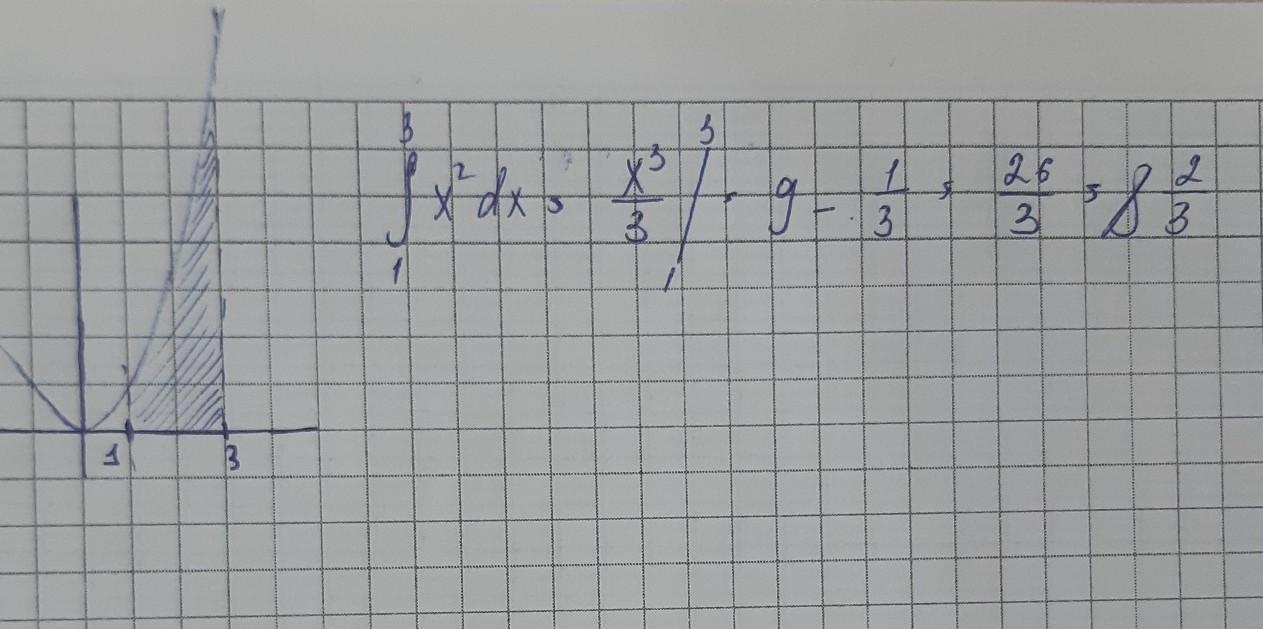 ∫₁³ x² dx = x³/3 /₁³ = 9 - 1/3 = 26/3 = 8 2/3
1 3